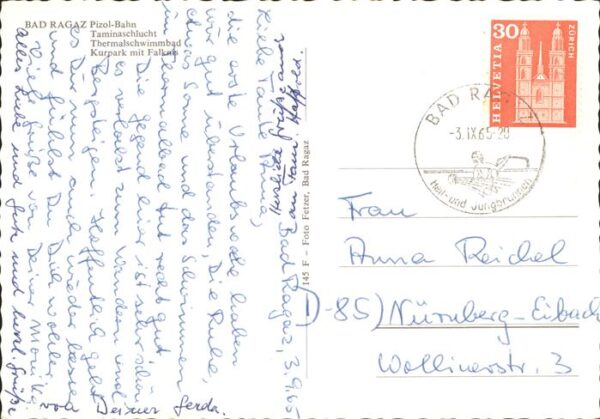 BAD RAGAZ Pizol-Bahn
Taminaschlucht
Thermalschwimmbad
Kurpark mit Falknis
145 F - Foto Fetzer, Bad Ragaz
30
HELVETIA
ZÜRICH
BAD RAGAZ
-3.IX.65-20
Heil- und Jungbrunnen
Frau
Anna Reichel
D-85) Nürnberg-Eibach
Wollinerstr. 3
Bad Ragaz, 3.9.65
Liebe Tante Anna,
die erste Urlaubswoche haben
wir gut überstanden. Die Ruhe,
etwas Sonne und das Schwimmen
im Thermalbad tut recht gut.
Die Gegend hier ist sehr schön
es verlockt zum Wandern und
Bergsteigen. Hoffentlich geht
es Dir nun auch wieder besser
und fühlst Du Dich wohler.
Viele Grüße von Deiner Monika
alles Liebe und Gute und herzl. Grüße
von Deiner Gerda.
Herzliche Grüße